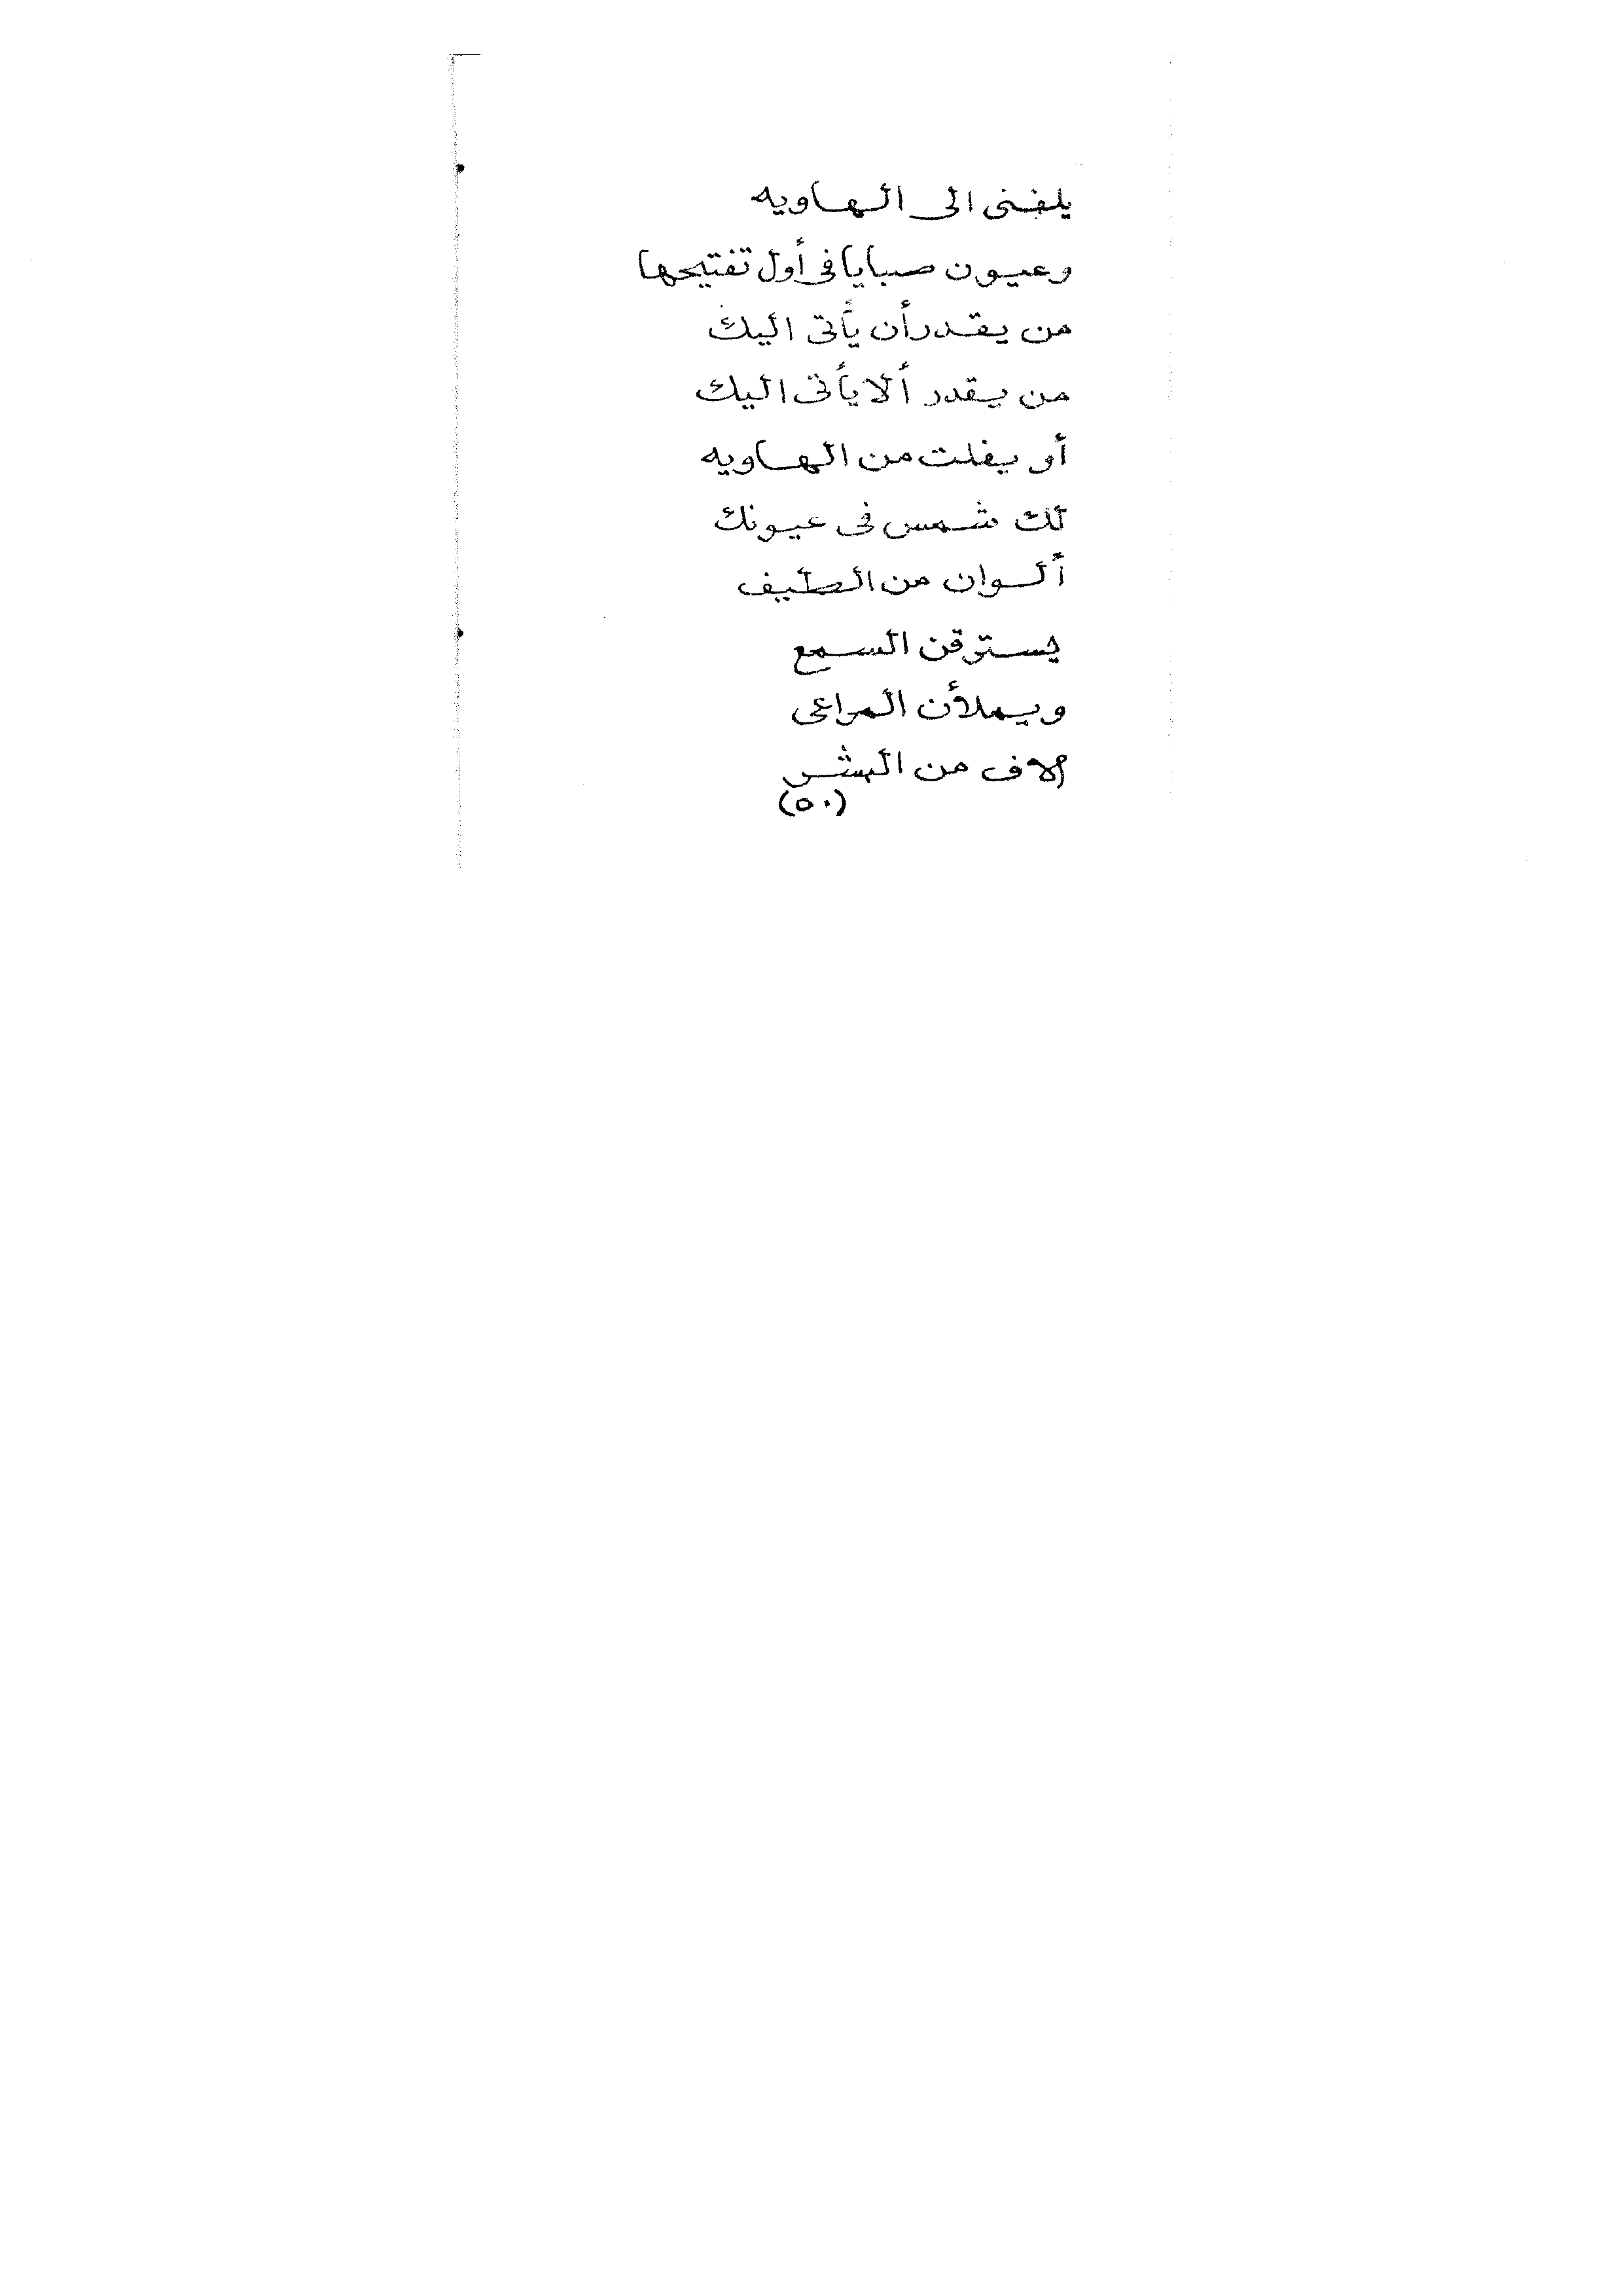 يلفنى الى الهاويه
وعيون صبايا فى أول تفتيحها
من يقدر أن يأتى اليك
من يقدر ألا يأتى اليك
أو يفلت من الهاويه
لك شمس فى عيونك
ألوان من الطيف
يسترقن السمع
ويملأن المراعى
آلاف من البشر
(٥٠)